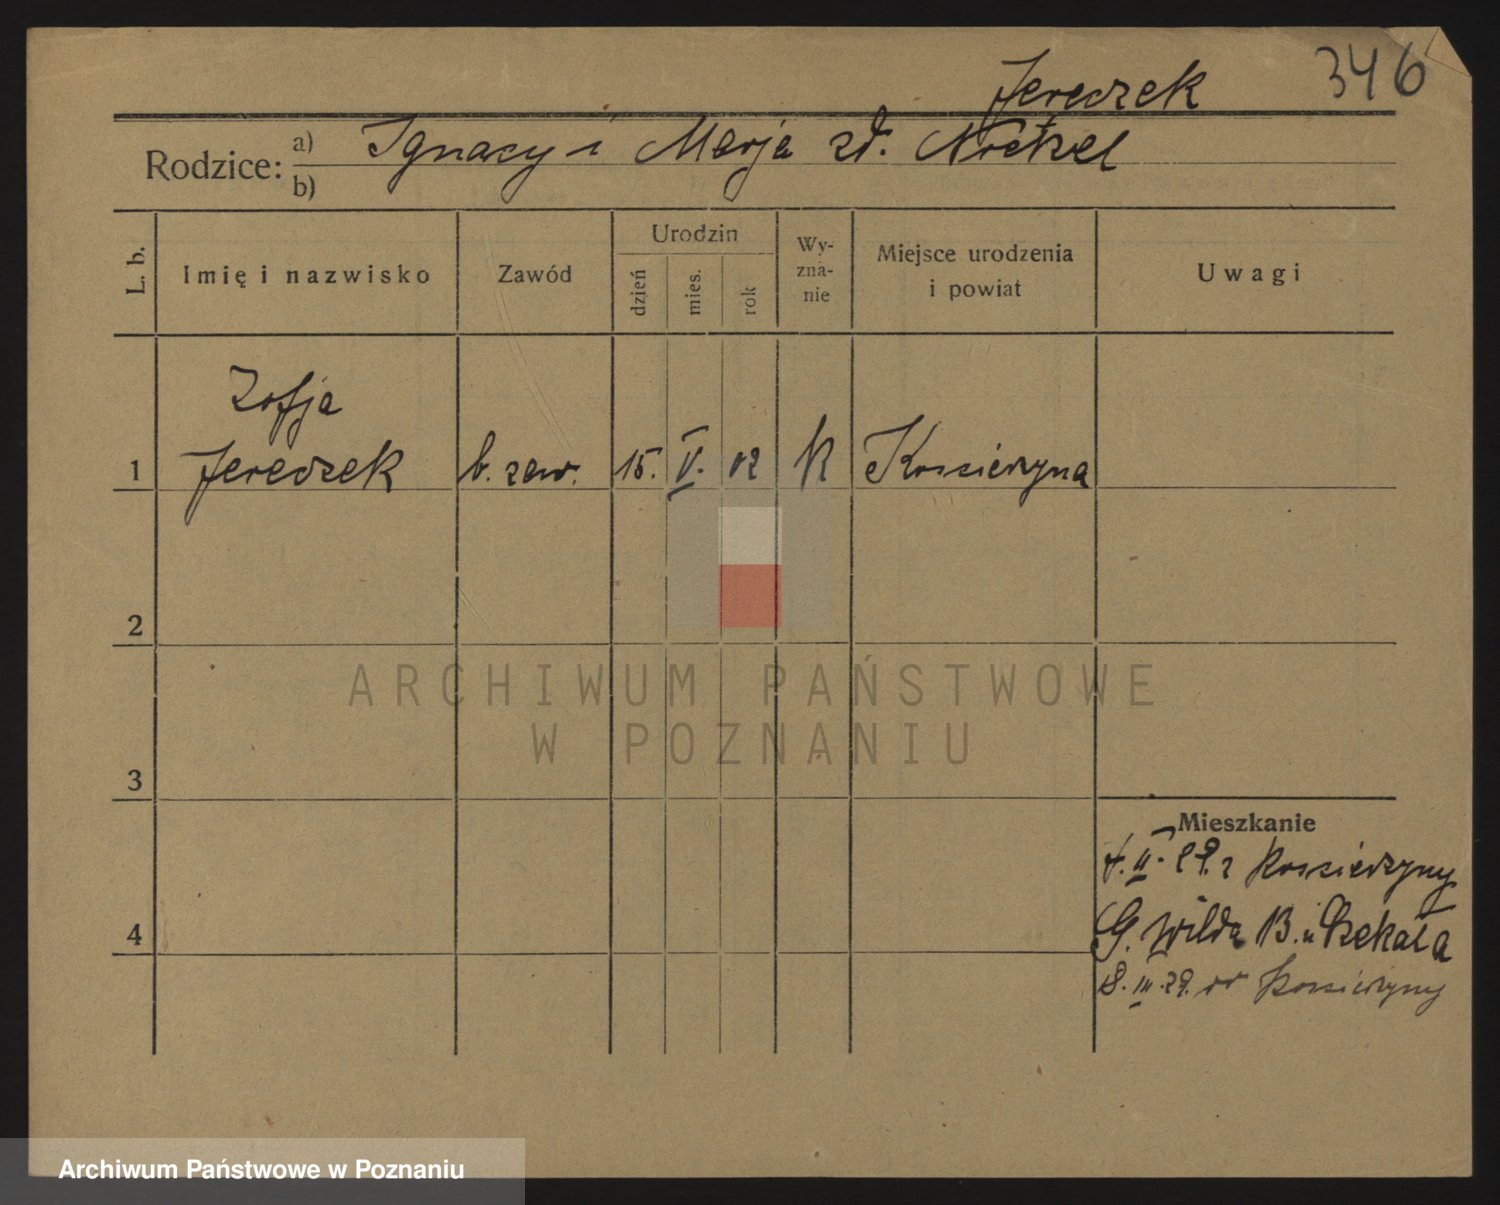 346
Jereczek
Rodzice: a) Ignacy i Marja zd.
b)
L. b.
Imię i nazwisko
Zawód
Urodzin
dzień
mies.
rok
Wy-
zna-
nie
Miejsce urodzenia
i powiat
Uwagi
Zofja
1 Jereczek b. zaw. 15. V. 02 k Kościerzyna
2
3
4
Mieszkanie
II. 29. z Kościerzyny
G. Wilda B. u
8. III. 29. do Kościerzyny
ARCHIWUM PAŃSTWOWE
W POZNANIU
Archiwum Państwowe w Poznaniu